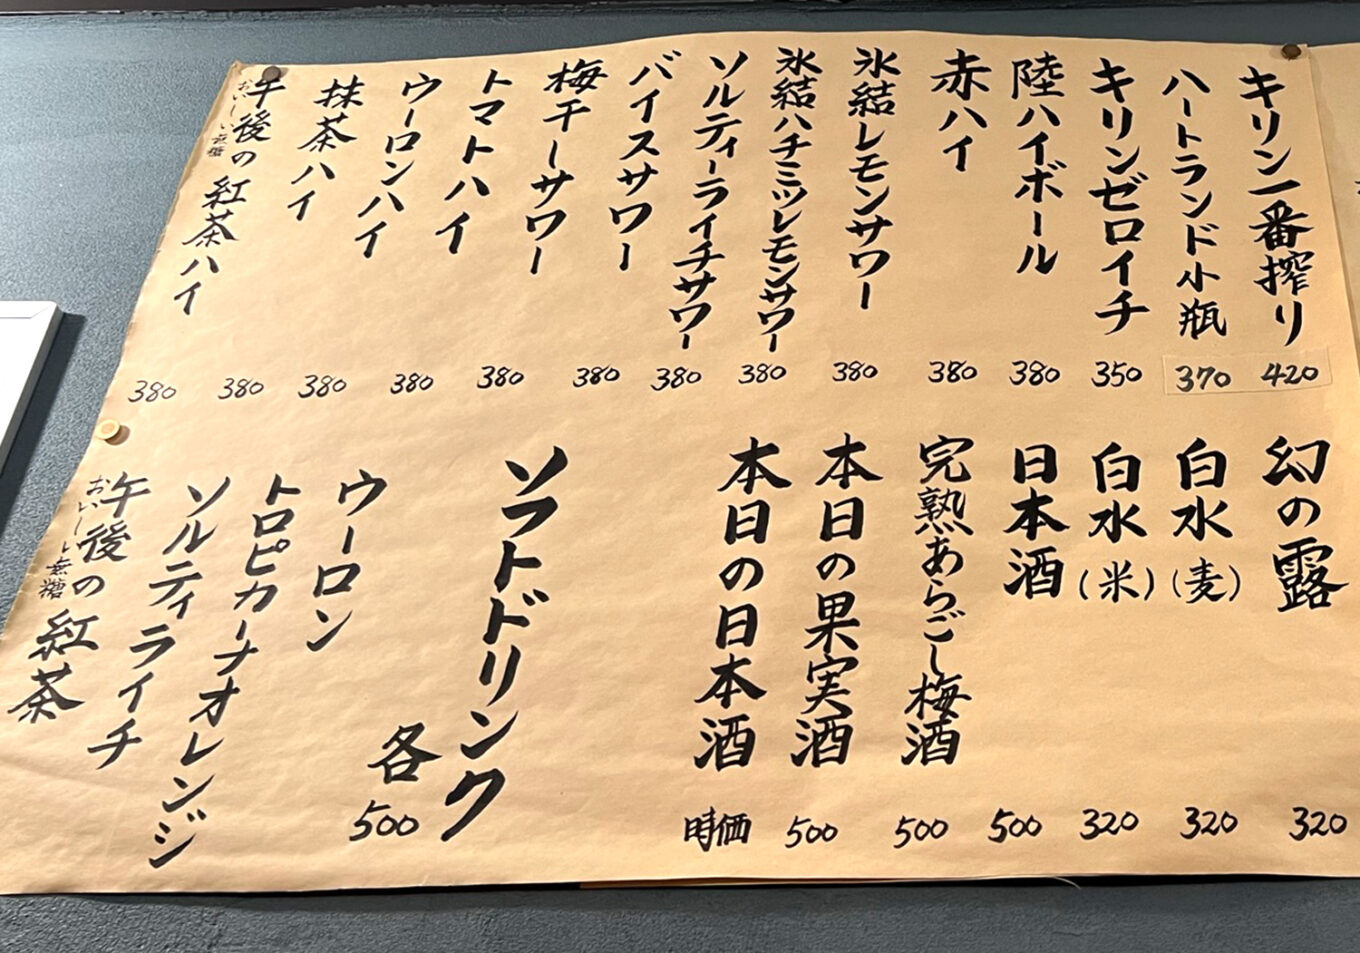 キリン一番搾り
420
ハートランド小瓶
370
キリンゼロイチ
350
陸ハイボール
380
赤ハイ
380
氷結レモンサワー
380
氷結ハチミツレモンサワー
380
ソルティーライチサワー
380
バイスサワー
380
梅干ーサワー
380
トマトハイ
380
ウーロンハイ
380
抹茶ハイ
380
午後の紅茶ハイ
おいしい無糖
380
幻の露
320
白水(麦)
320
白水(米)
320
日本酒
500
完熟あらごし梅酒
500
本日の果実酒
500
本日の日本酒
時価
ソフトドリンク
各500
ウーロン
トロピカーナオレンジ
ソルティライチ
午後の紅茶
おいしい無糖